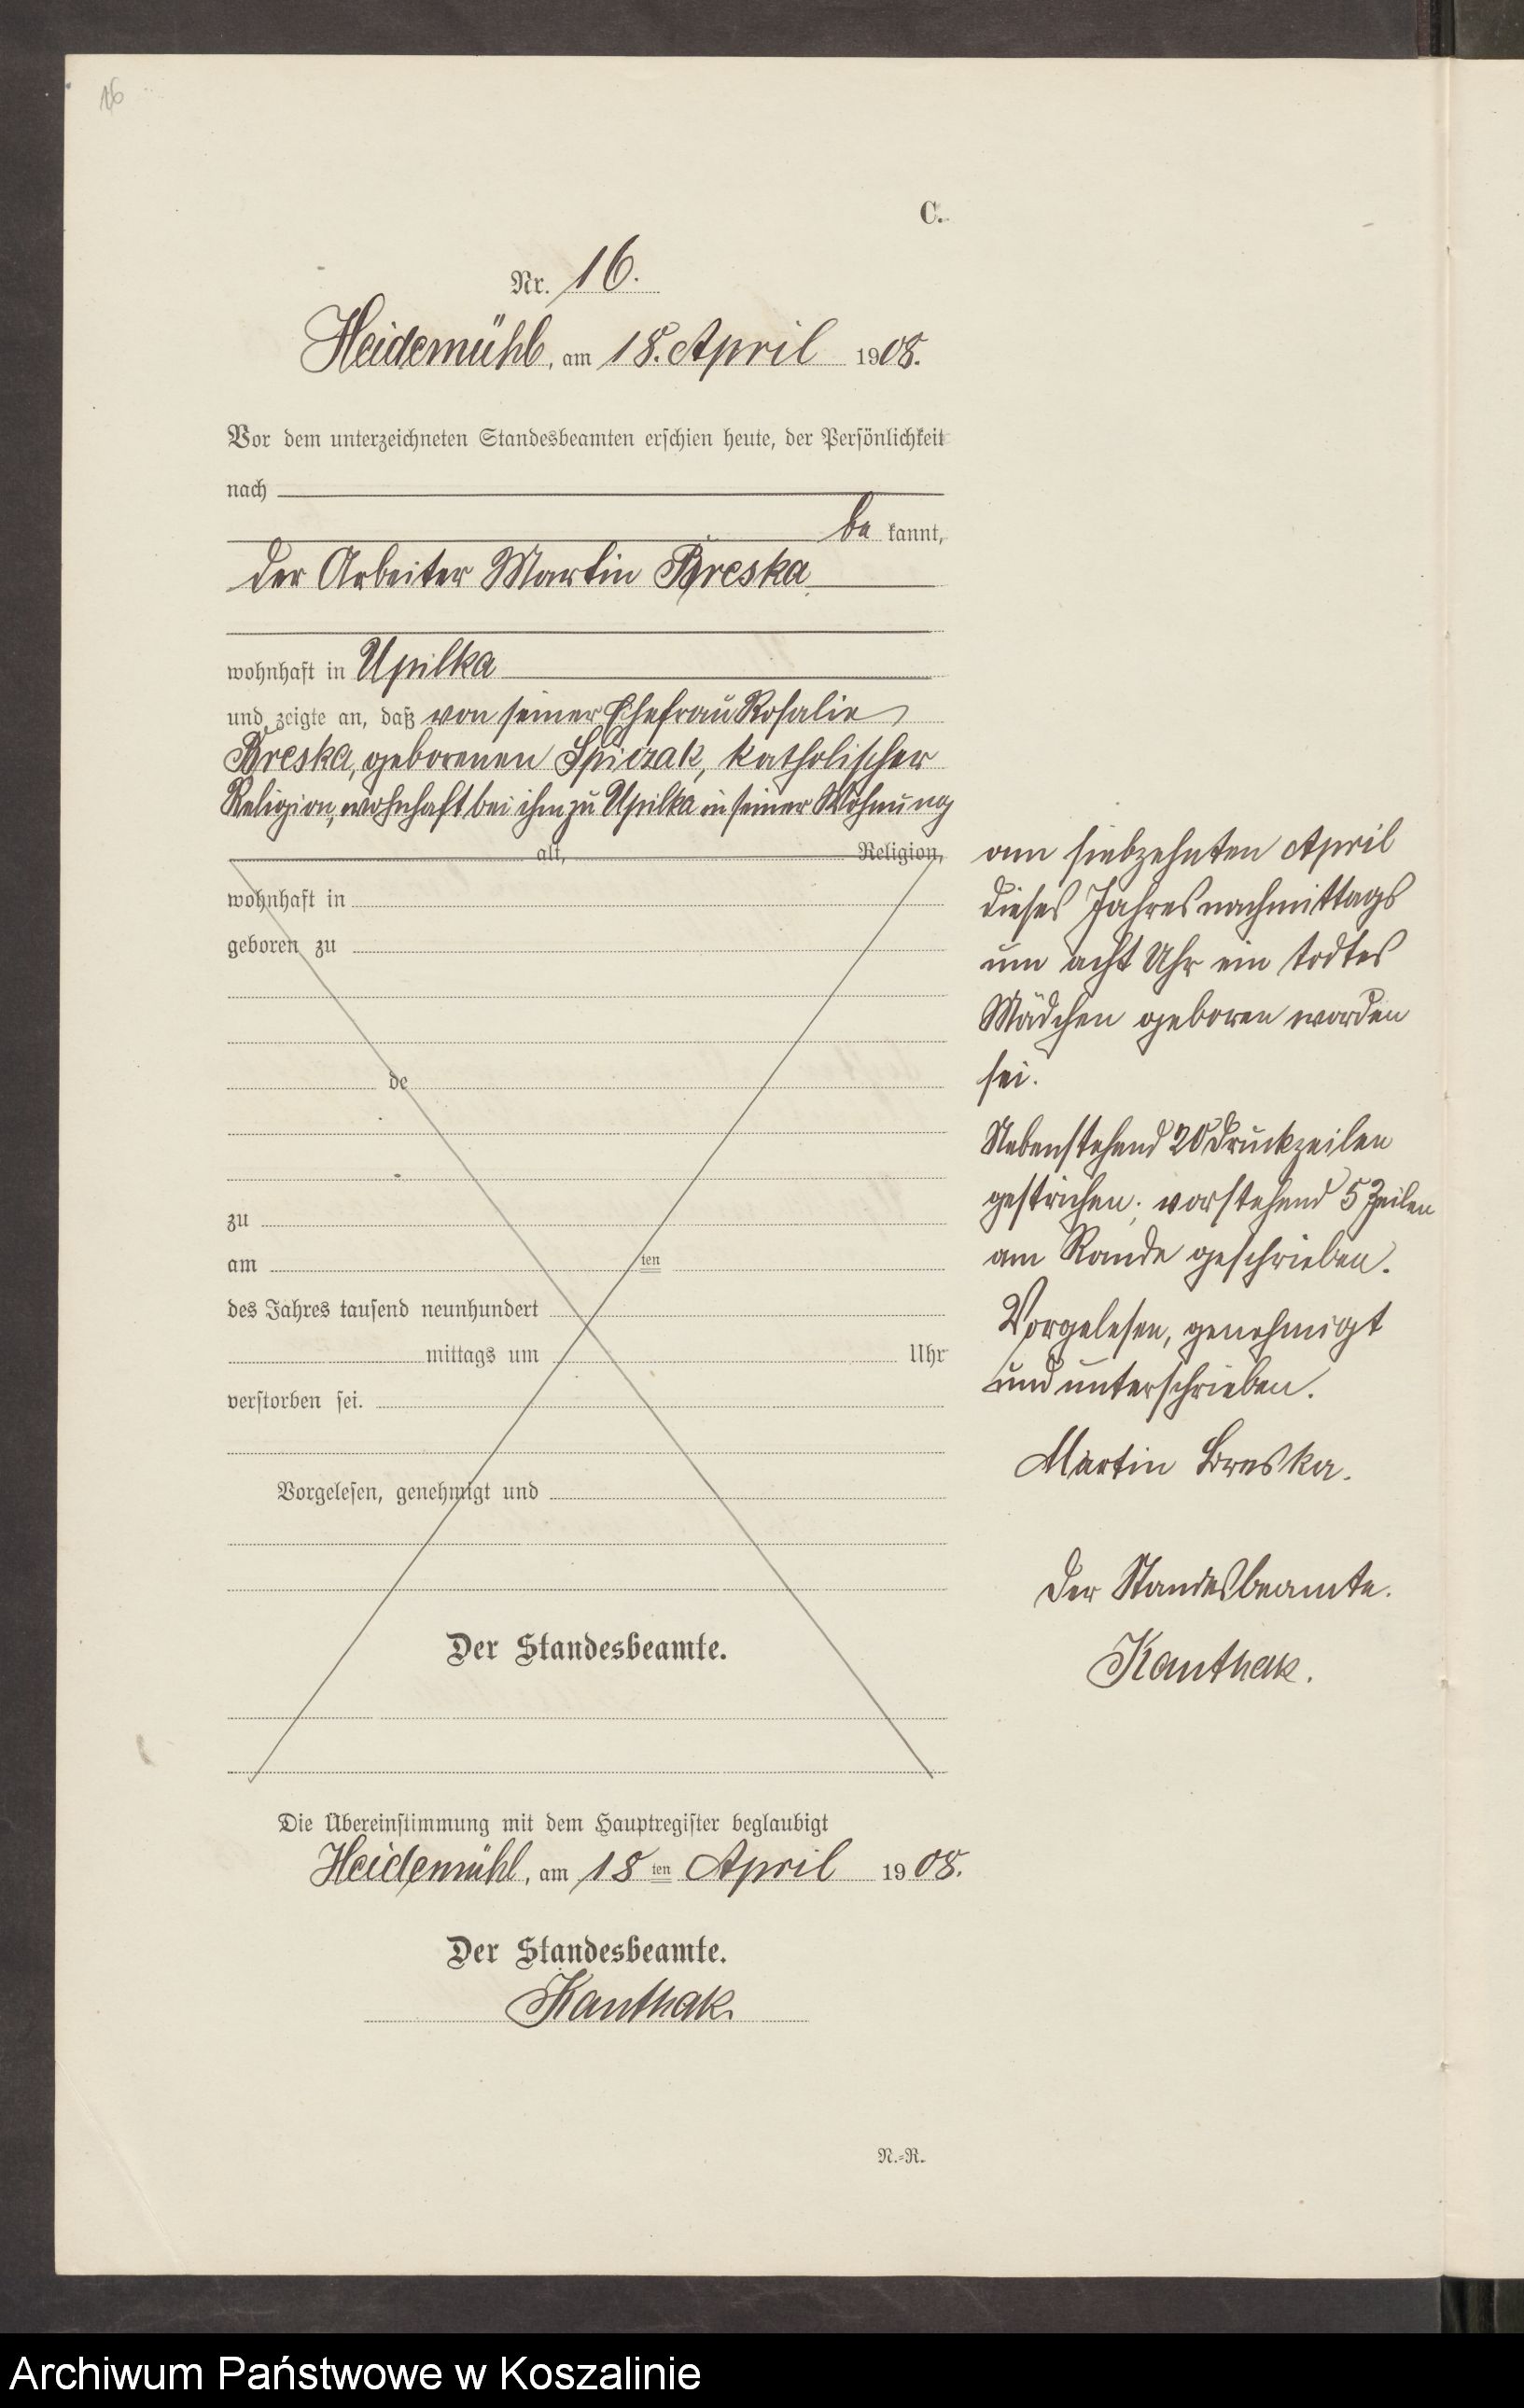 16
C.
Nr. 16.
Heidemühl, am 18. April 1908.
Vor dem unterzeichneten Standesbeamten erschien heute, der Persönlichkeit
nach
be kannt,
der Arbeiter Martin Breska
wohnhaft in Upilka
und zeigte an, daß von seiner Ehefrau Rosalie
Breska, geborenen Spiczak, katholischer
Religion, wohnhaft bei ihm zu Upilka in seiner Wohnung
alt, Religion,
wohnhaft in
geboren zu
de
zu
am ten
des Jahres tausend neunhundert
mittags um Uhr
verstorben sei.
Vorgelesen, genehmigt und
Der Standesbeamte.
am siebzehnten April
dieses Jahres nachmittags
um acht Uhr ein todtes
Mädchen geboren worden
sei.
Nebenstehend 20 Druckzeilen
gestrichen; vorstehend 5 Zeilen
am Rande geschrieben.
Vorgelesen, genehmigt
und unterschrieben.
Martin Breska.
Der Standesbeamte.
Kanthak.
Die Übereinstimmung mit dem Hauptregister beglaubigt
Heidemühl, am 18 ten April 1908.
Der Standesbeamte.
Kanthak.
N.=R.
Archiwum Państwowe w Koszalinie